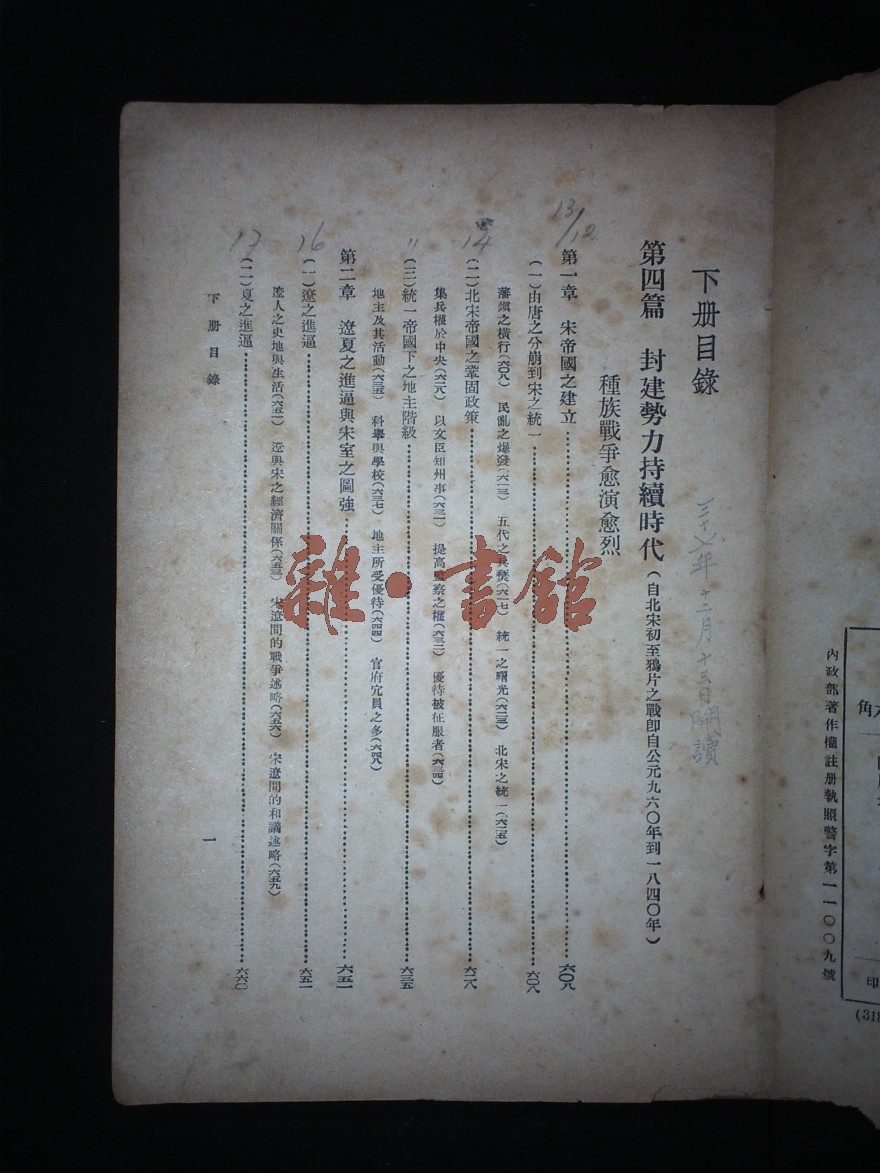 內政部著作權註册執照警字第一一〇〇九號
角
印
(318
下册目錄
三十七年十二月十三日開讀
第四篇 封建勢力持續時代(自北宋初至鴉片之戰卽自公元九六〇年到一八四〇年)
種族戰爭愈演愈烈
13/12
第一章 宋帝國之建立……六〇八
(一)由唐之分崩到宋之統一……六〇八
藩鎮之橫行(六〇八) 民亂之爆發(六一三) 五代之兵爨(六一七) 統一之曙光(六二三) 北宋之統一(六二五)
14
(二)北宋帝國之鞏固政策……六二八
集兵權於中央(六二九) 以文臣知州事(六三一) 提高監察之權(六三二) 優待被征服者(六三四)
〃
(三)統一帝國下之地主階級……六三五
地主及其活動(六三五) 科舉與學校(六三七) 地主所受優待(六四四) 官府冗員之多(六四九)
第二章 遼夏之進逼與宋室之圖強……六五一
16
(一)遼之進逼……六五一
遼人之史地與生活(六五一) 遼與宋之經濟關係(六五三) 宋遼間的戰爭述略(六五六) 宋遼間的和議述略(六五九)
17
(二)夏之進逼……六六〇
下册目錄
一
雜·書館